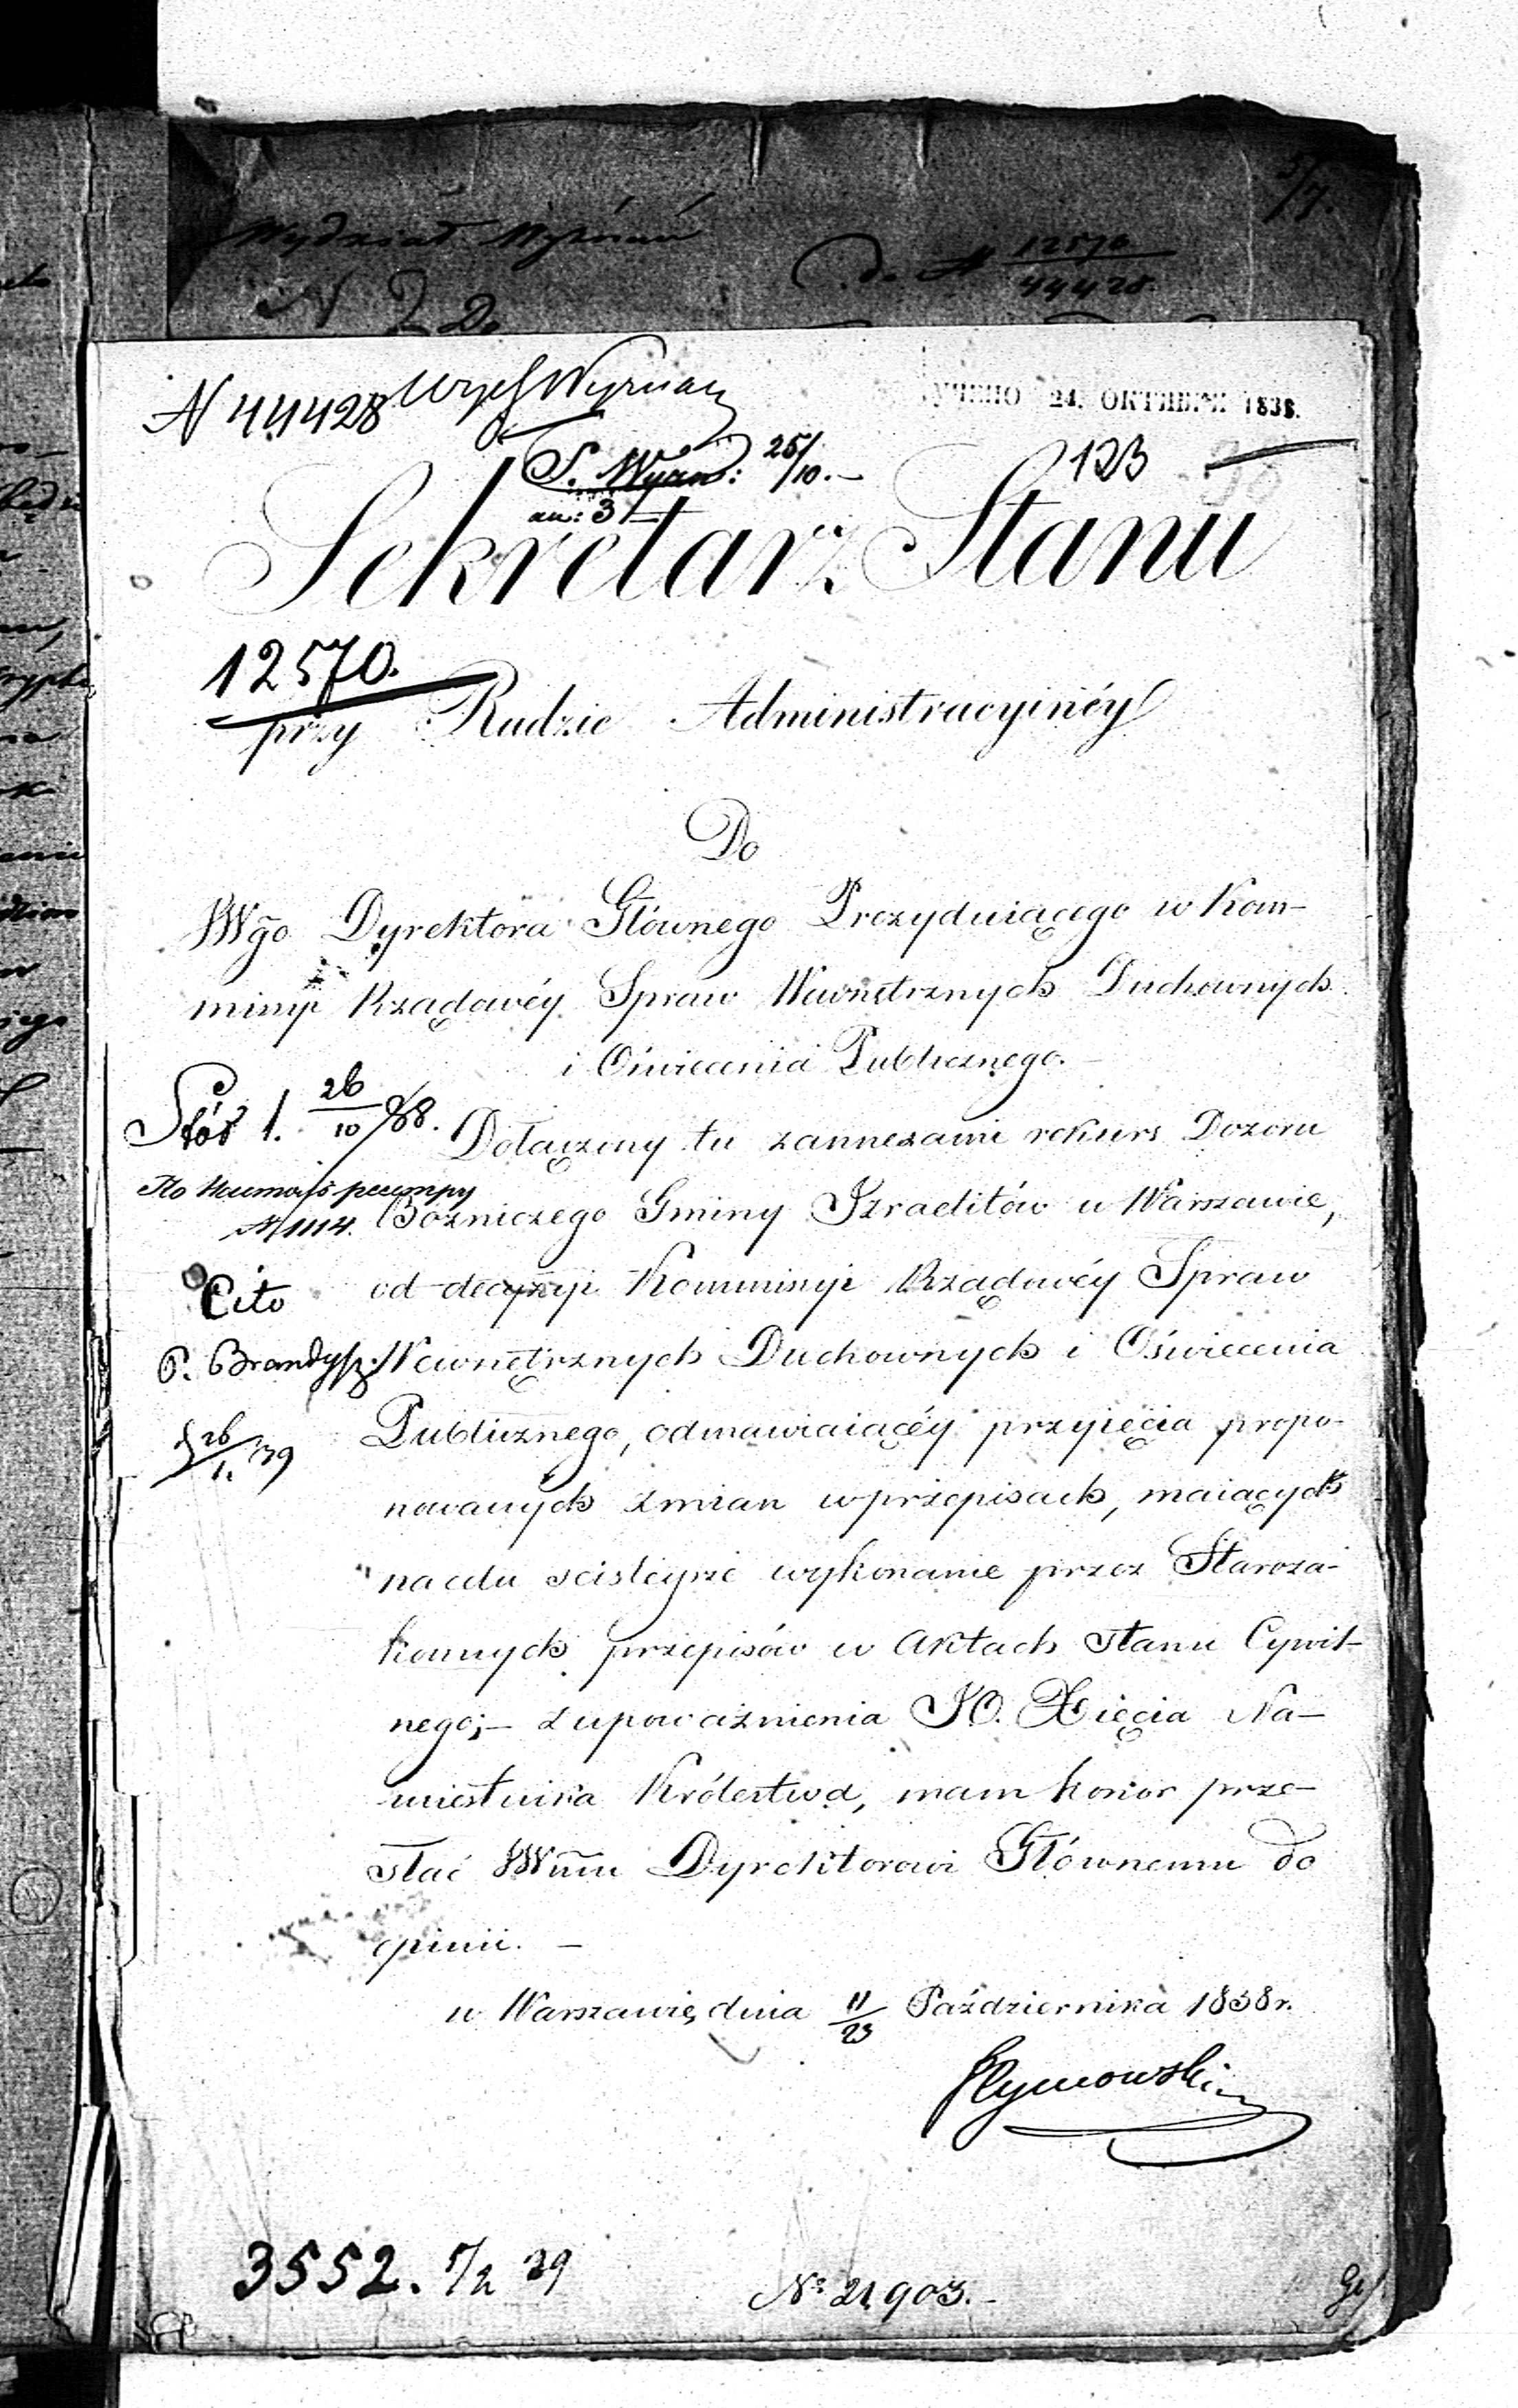 Wydział Wyznań
do N 12570
44428
N 44428 Wyzf Wyznań
УЧЕНО 24. ОКТЯБРЯ 1838.
S. Wyzn: 25/10. —
an: 3
123
Sekretarz Stanu
12570.
przy Radzie Administracyinéy
Do
JWgo Dyrektora Głównego Prezyduiącego w Kom-
missyi Rządowéy Spraw Wewnętrznych Duchownych
i Oświecenia Publicznego. —
26/10 /88.
Dołączony tu zannexami rekurs Dozoru
По Номенъ реэстру
N 1114.
Bożniczego Gminy Izraelitów w Warszawie,
Cito
od decyzyi Kommissyi Rządowéy Spraw
P. Brandysz.
Wewnętrznych Duchownych i Oświecenia
26/1. 39
Publicznego, odmawiaiącéy przyięcia propo-
nowanych zmian w przepisach, maiących
na celu ścisléysze wykonanie przez Staroza-
konnych przepisów w Aktach Stanu Cywil-
nego; — z upoważnienia JO. Xięcia Na-
miestnika Królestwa, mam honor prze-
słać JWmu Dyrektorowi Głównemu do
opinii. —
w Warszawie, dnia 11/23 Października 1838 r.
Tymowski
3552. 5/2 39
Nº 21,903. —